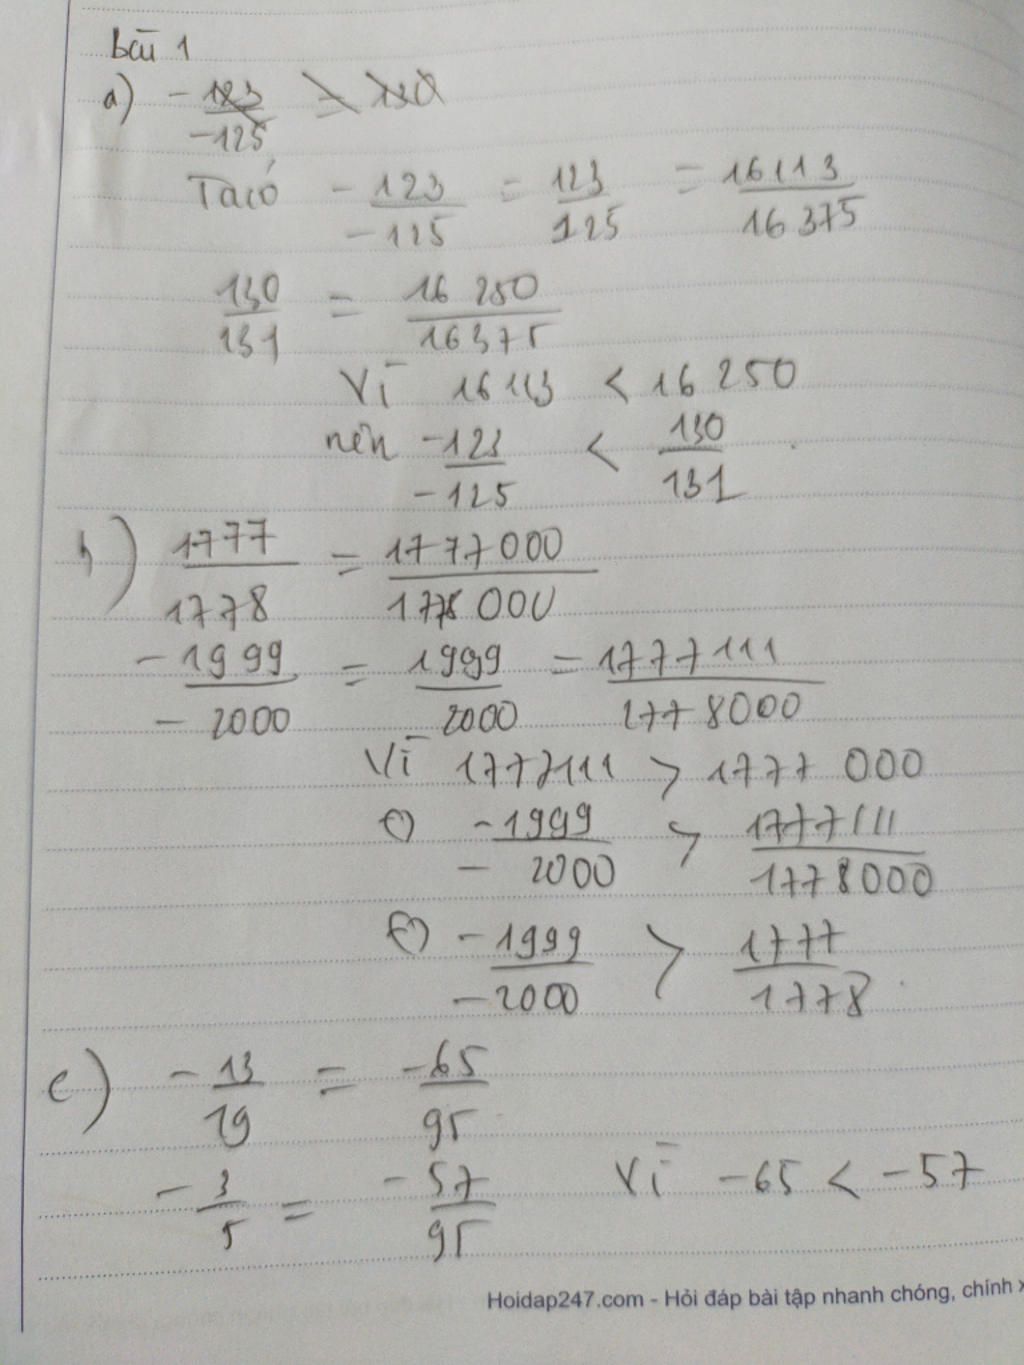 bài 1
a) -123/-125 = 130
Ta có -123/-125 = 123/125 = 16113/16375
130/131 = 16250/16375
Vì 16113 < 16250
nên -123/-125 < 130/131.
b) 1777/1778 = 1777000/1778000
-1999/-2000 = 1999/2000 = 1777111/1778000
Vì 1777111 > 1777000
=) -1999/-2000 > 1777111/1778000
=) -1999/-2000 > 1777/1778.
c) -13/19 = -65/95
-3/5 = -57/95 Vì -65 < -57
Hoidap247.com - Hỏi đáp bài tập nhanh chóng, chính